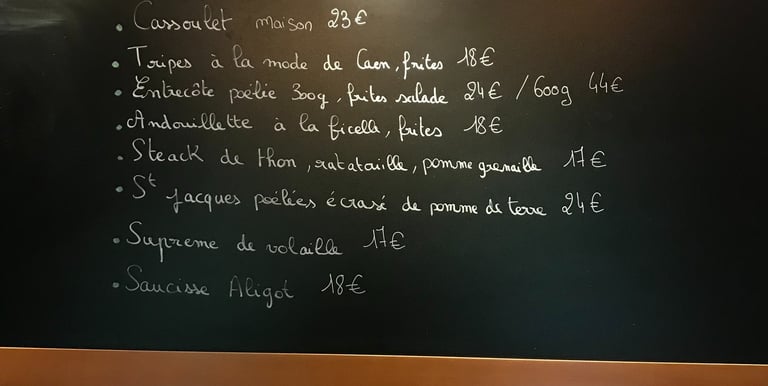 . Cassoulet maison 23€
. Tripes à la mode de Caen, frites 18€
. Entrecôte poêlée 300g, frites salade 24€ / 600g 44€
. Andouillette à la ficelle, frites 18€
. Steack de thon, ratatouille, pomme grenaille 17€
. St Jacques poêlées écrasé de pomme de terre 24€
. Supreme de volaille 17€
. Saucisse Aligot 18€